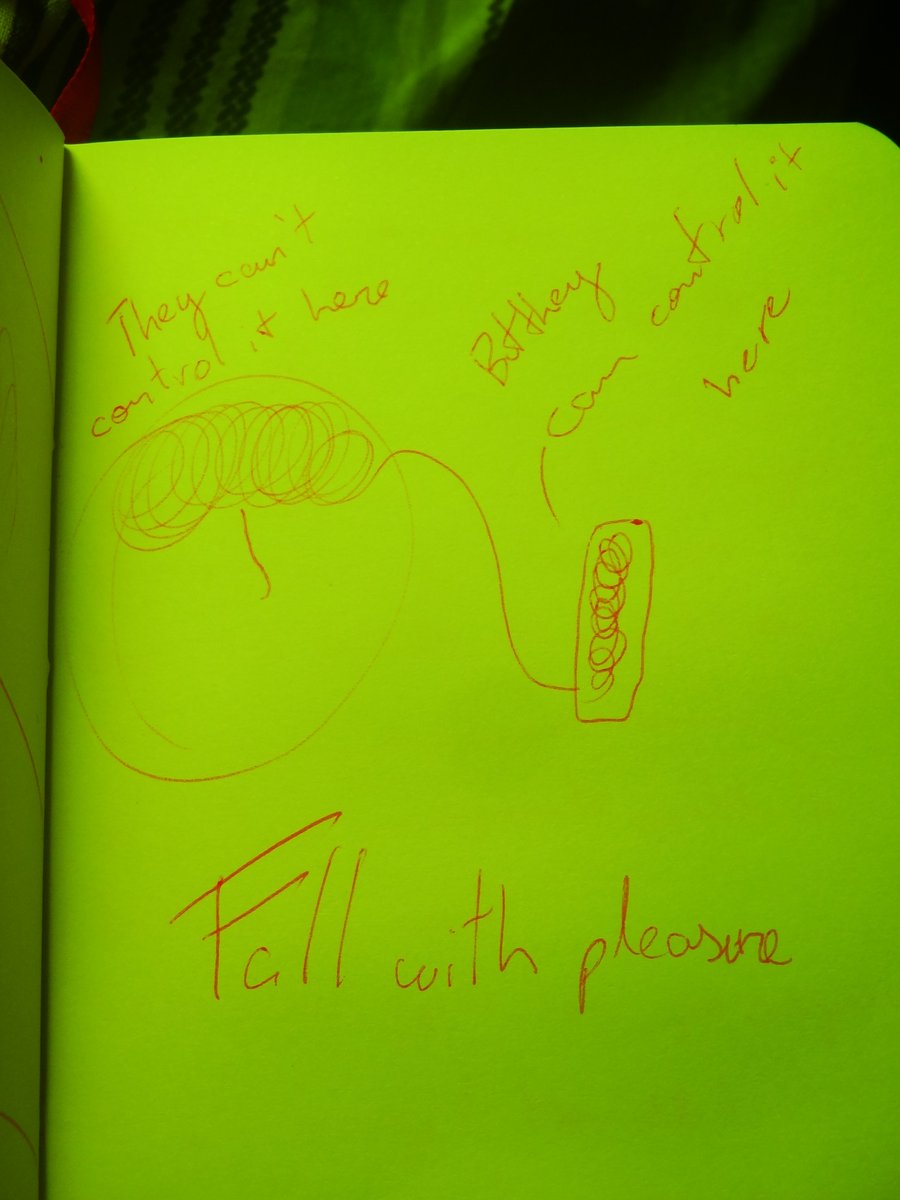 They can't
control it here
But they
can control it
here
Fall with pleasure